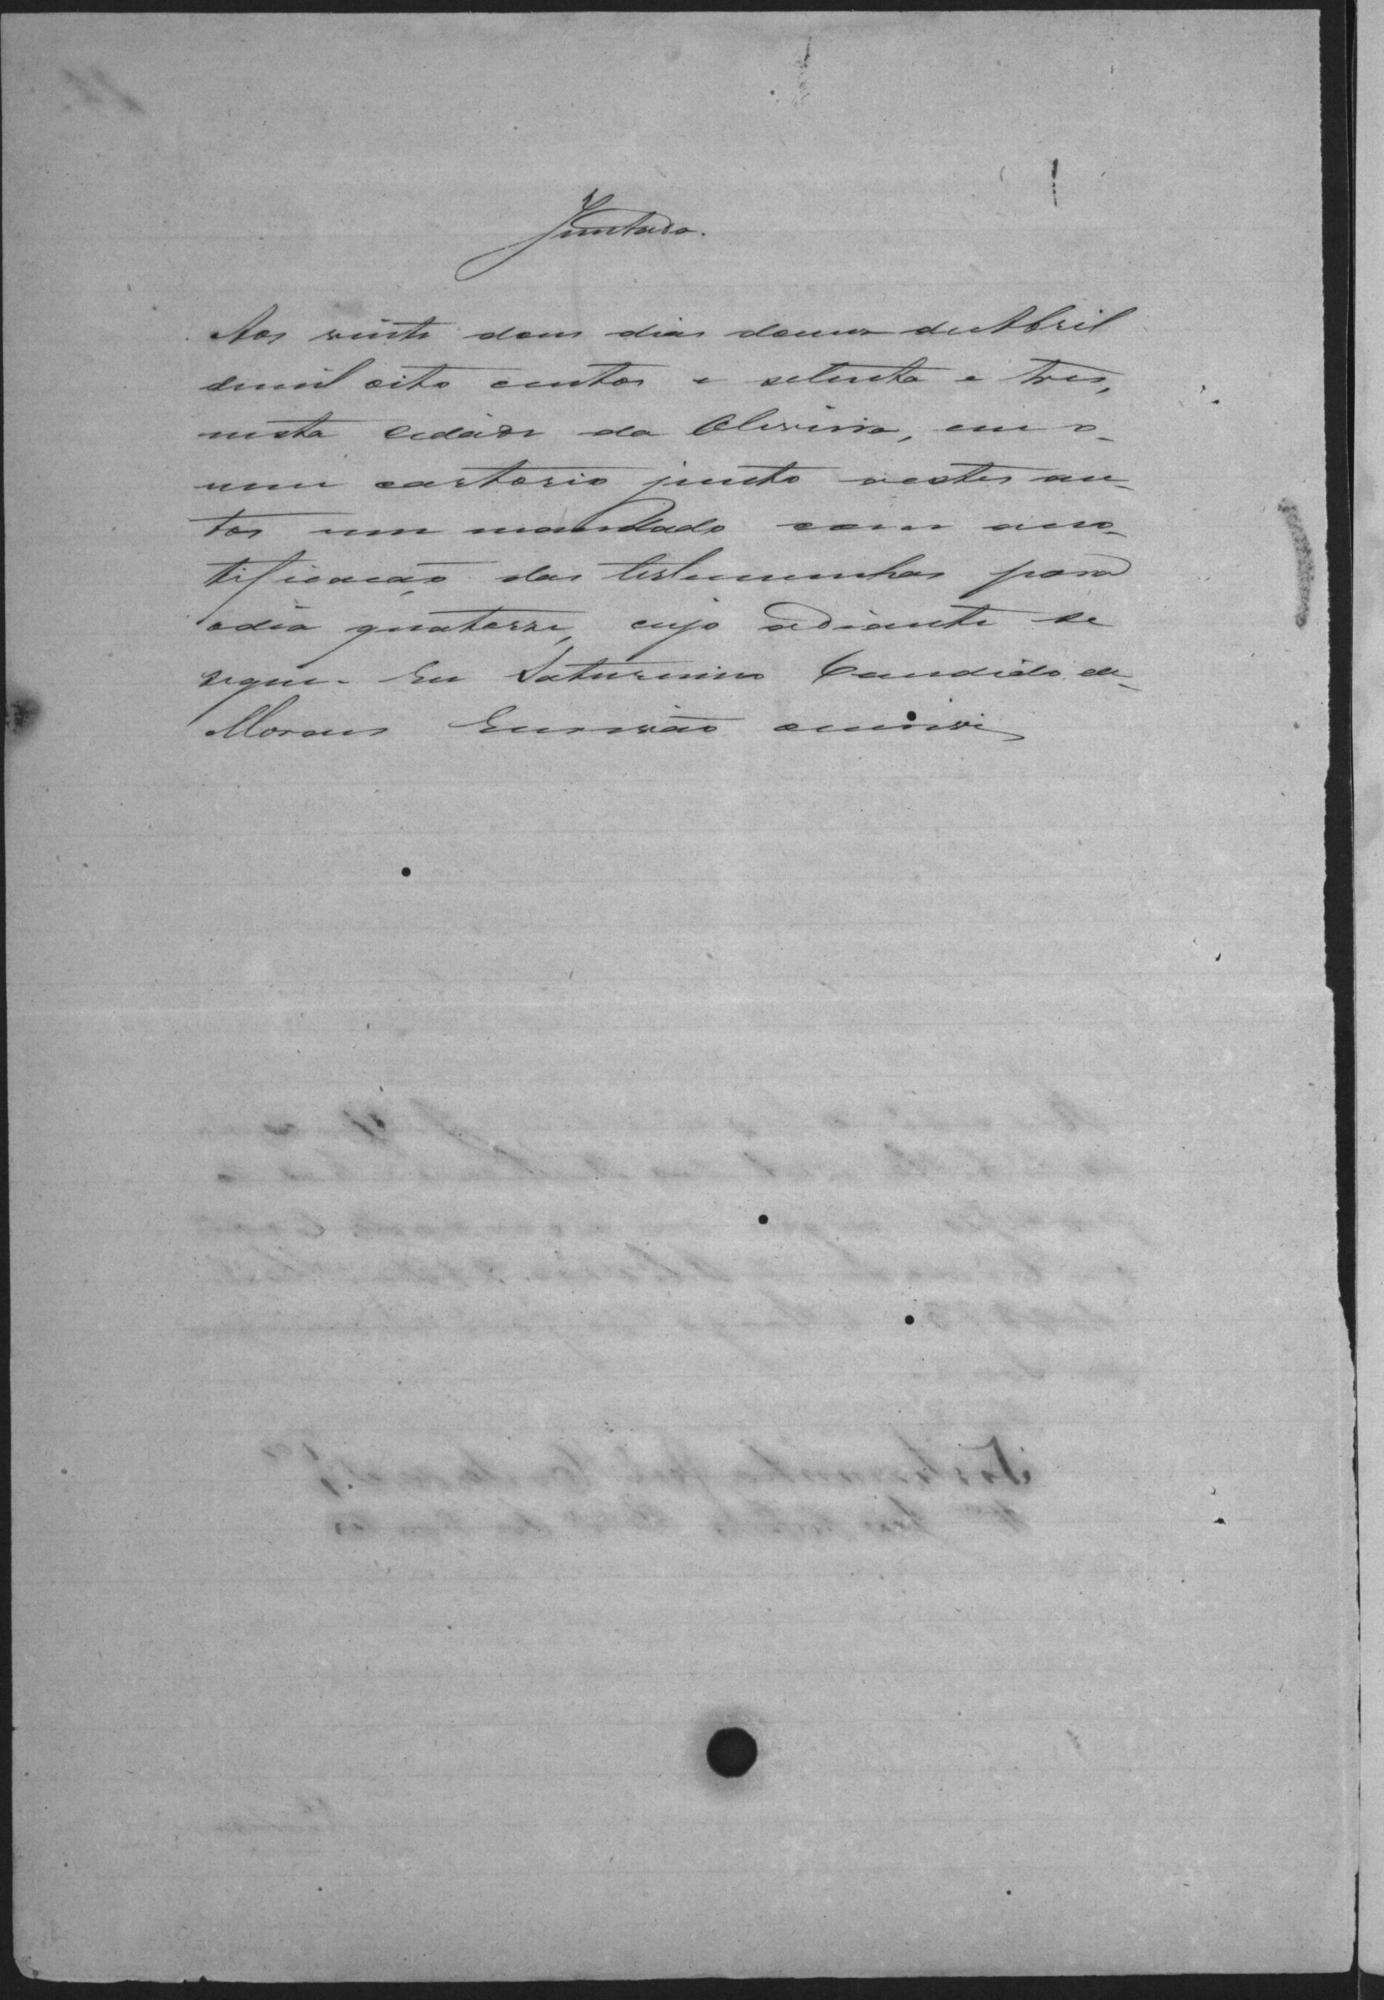 Juntada.
Aos vinte dous dias domes de Abril
demil oito centos e setenta e tres,
nesta cidade da Oliveira, em o
meu cartorio junto a estes au-
tos um mandado com ano-
tificação das testemunhas para
odia quatorze, cujo adiante se
segue. Eu Saturnino Candido de
Moraes Escrivão escrivi